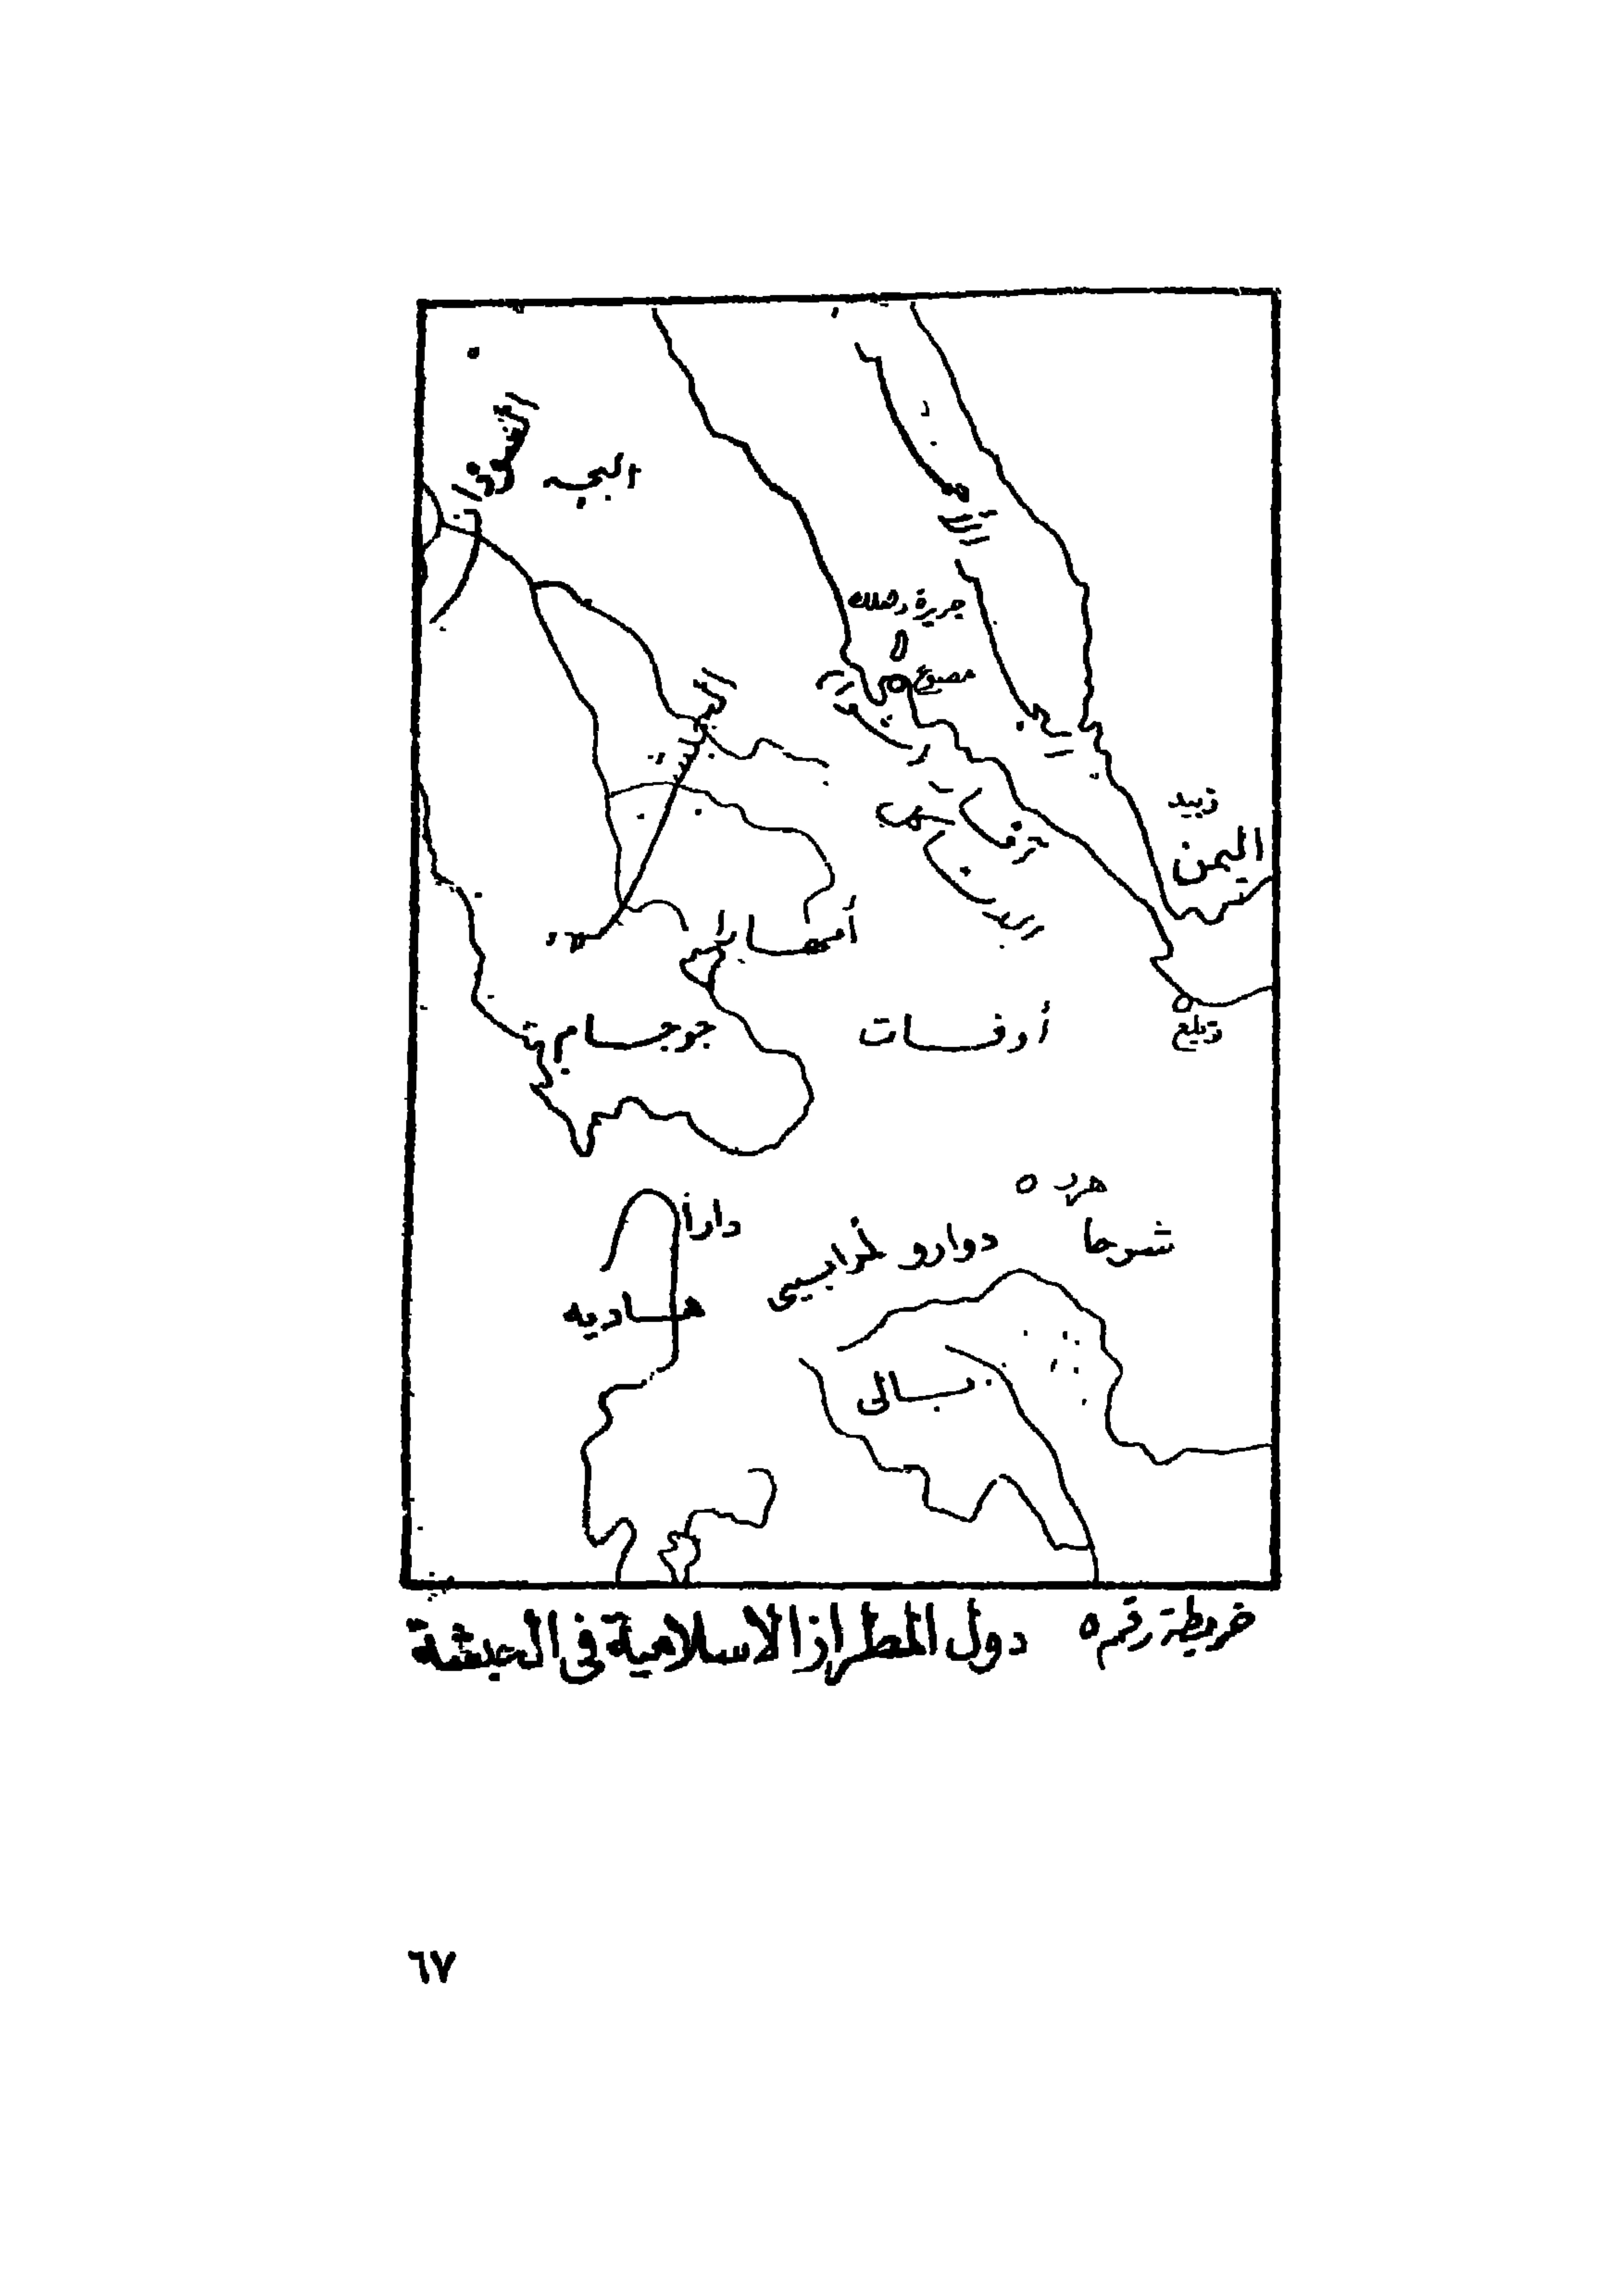 السودان
البجه
جزيرة دهلك
مصوع
زبيد
اليمن
أمحارا
جوجام
أوفات
زيلع
هرر
شرحا
دوارو
دارا
هاديه
بالى
خريطة رقم ٥ دول الطراز الاسلامية فى الحبشة
٦٧